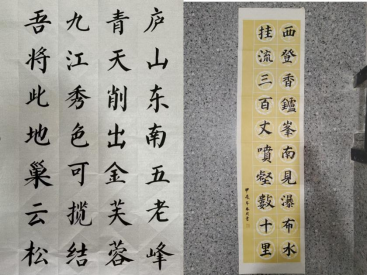 庐山东南五老峰
青天削出金芙蓉
九江秀色可揽结
吾将此地巢云松
西登香鑪峯南見瀑布水
挂流三百丈噴壑數十里